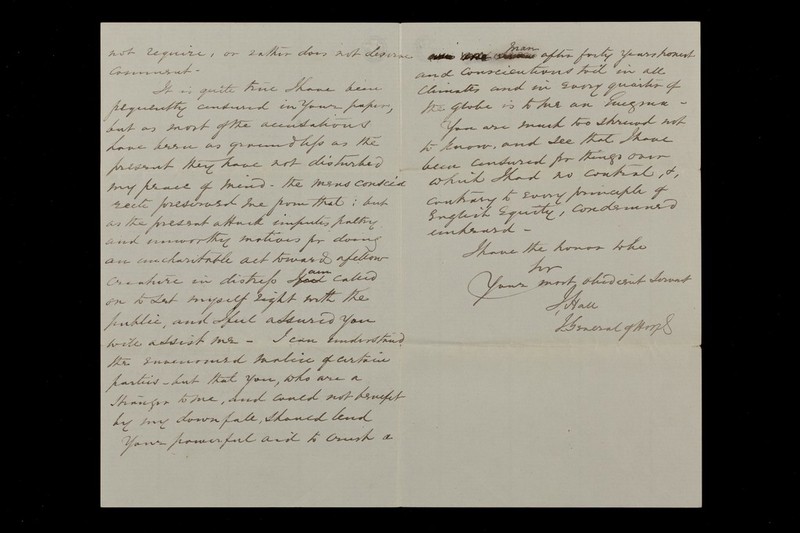 not require, or rather does not deserve
comment -
It is quite true I have been
frequently censured in your paper,
but as most of the accusations
have been as groundless as the
present they have not disturbed
my peace of mind - the mens conscia
recti preserved me from that: but
as the present attack imputes paltry
and unworthy motives for doing
an uncharitable act toward a fellow
creature in distress I am called
on to set myself right with the
public, and I feel assured you
will assist me - I can understand
the envenomed malice of certain
parties - but that you, who are a
stranger to me, and could not benefit
by my downfall, should lend
your powerful aid to crush a
man after forty years honest
and conscientious toil in all
climates and in every quarter of
the globe is to me an Enigma -
You are much too shrewd not
to know, and see that I have
been censured for things over
which I had no control, &,
contrary to every principle of
English Equity, condemned
unheard -
I have the honor to be
Sir
Your most obedient servant
J Hall